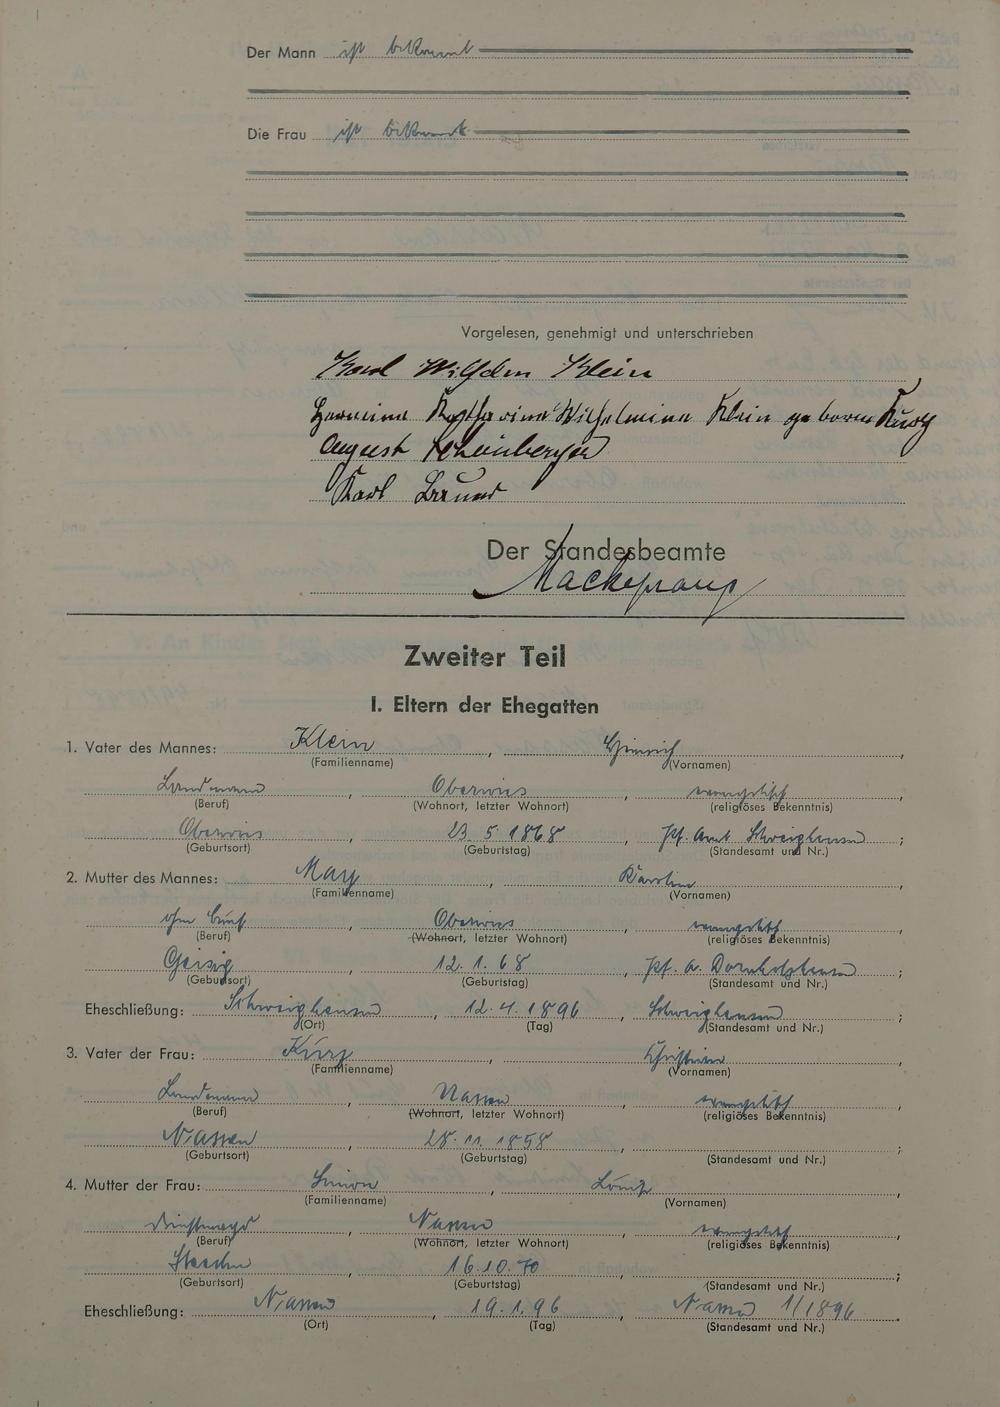 Der Mann ist bekannt
Die Frau ist bekannt
Vorgelesen, genehmigt und unterschrieben
Karl Wilhelm Klein
Hermine Katharine Wilhelmine Klein geborene Kurz
August Scheinberger
Karl Bruner
Der Standesbeamte
Mackeprang
Zweiter Teil
I. Eltern der Ehegatten
1. Vater des Mannes: Klein, Heinrich,
(Familienname) (Vornamen)
Landmann, Oberwies, evangelisch
(Beruf) (Wohnort, letzter Wohnort) (religiöses Bekenntnis)
Oberwies, 23.5.1868, Pf. Amt Schweighausen;
(Geburtsort) (Geburtstag) (Standesamt und Nr.)
2. Mutter des Mannes: May, Karoline,
(Familienname) (Vornamen)
ohne Beruf, Oberwies, evangelisch
(Beruf) (Wohnort, letzter Wohnort) (religiöses Bekenntnis)
Geisig, 12.1.68, Pf. A. Dornholzhausen;
(Geburtsort) (Geburtstag) (Standesamt und Nr.)
Eheschließung: Schweighausen, 12.4.1896, Schweighausen;
(Ort) (Tag) (Standesamt und Nr.)
3. Vater der Frau: Kurz, Christian,
(Familienname) (Vornamen)
Landmann, Nassau, evangelisch
(Beruf) (Wohnort, letzter Wohnort) (religiöses Bekenntnis)
Nassau, 28.11.1858,;
(Geburtsort) (Geburtstag) (Standesamt und Nr.)
4. Mutter der Frau: Simon, Louise,
(Familienname) (Vornamen)
Dienstmagd, Nassau, evangelisch
(Beruf) (Wohnort, letzter Wohnort) (religiöses Bekenntnis)
16.10.70,;
(Geburtsort) (Geburtstag) (Standesamt und Nr.)
Eheschließung: Nassau, 19.1.96, Nassau 1/1896.
(Ort) (Tag) (Standesamt und Nr.)